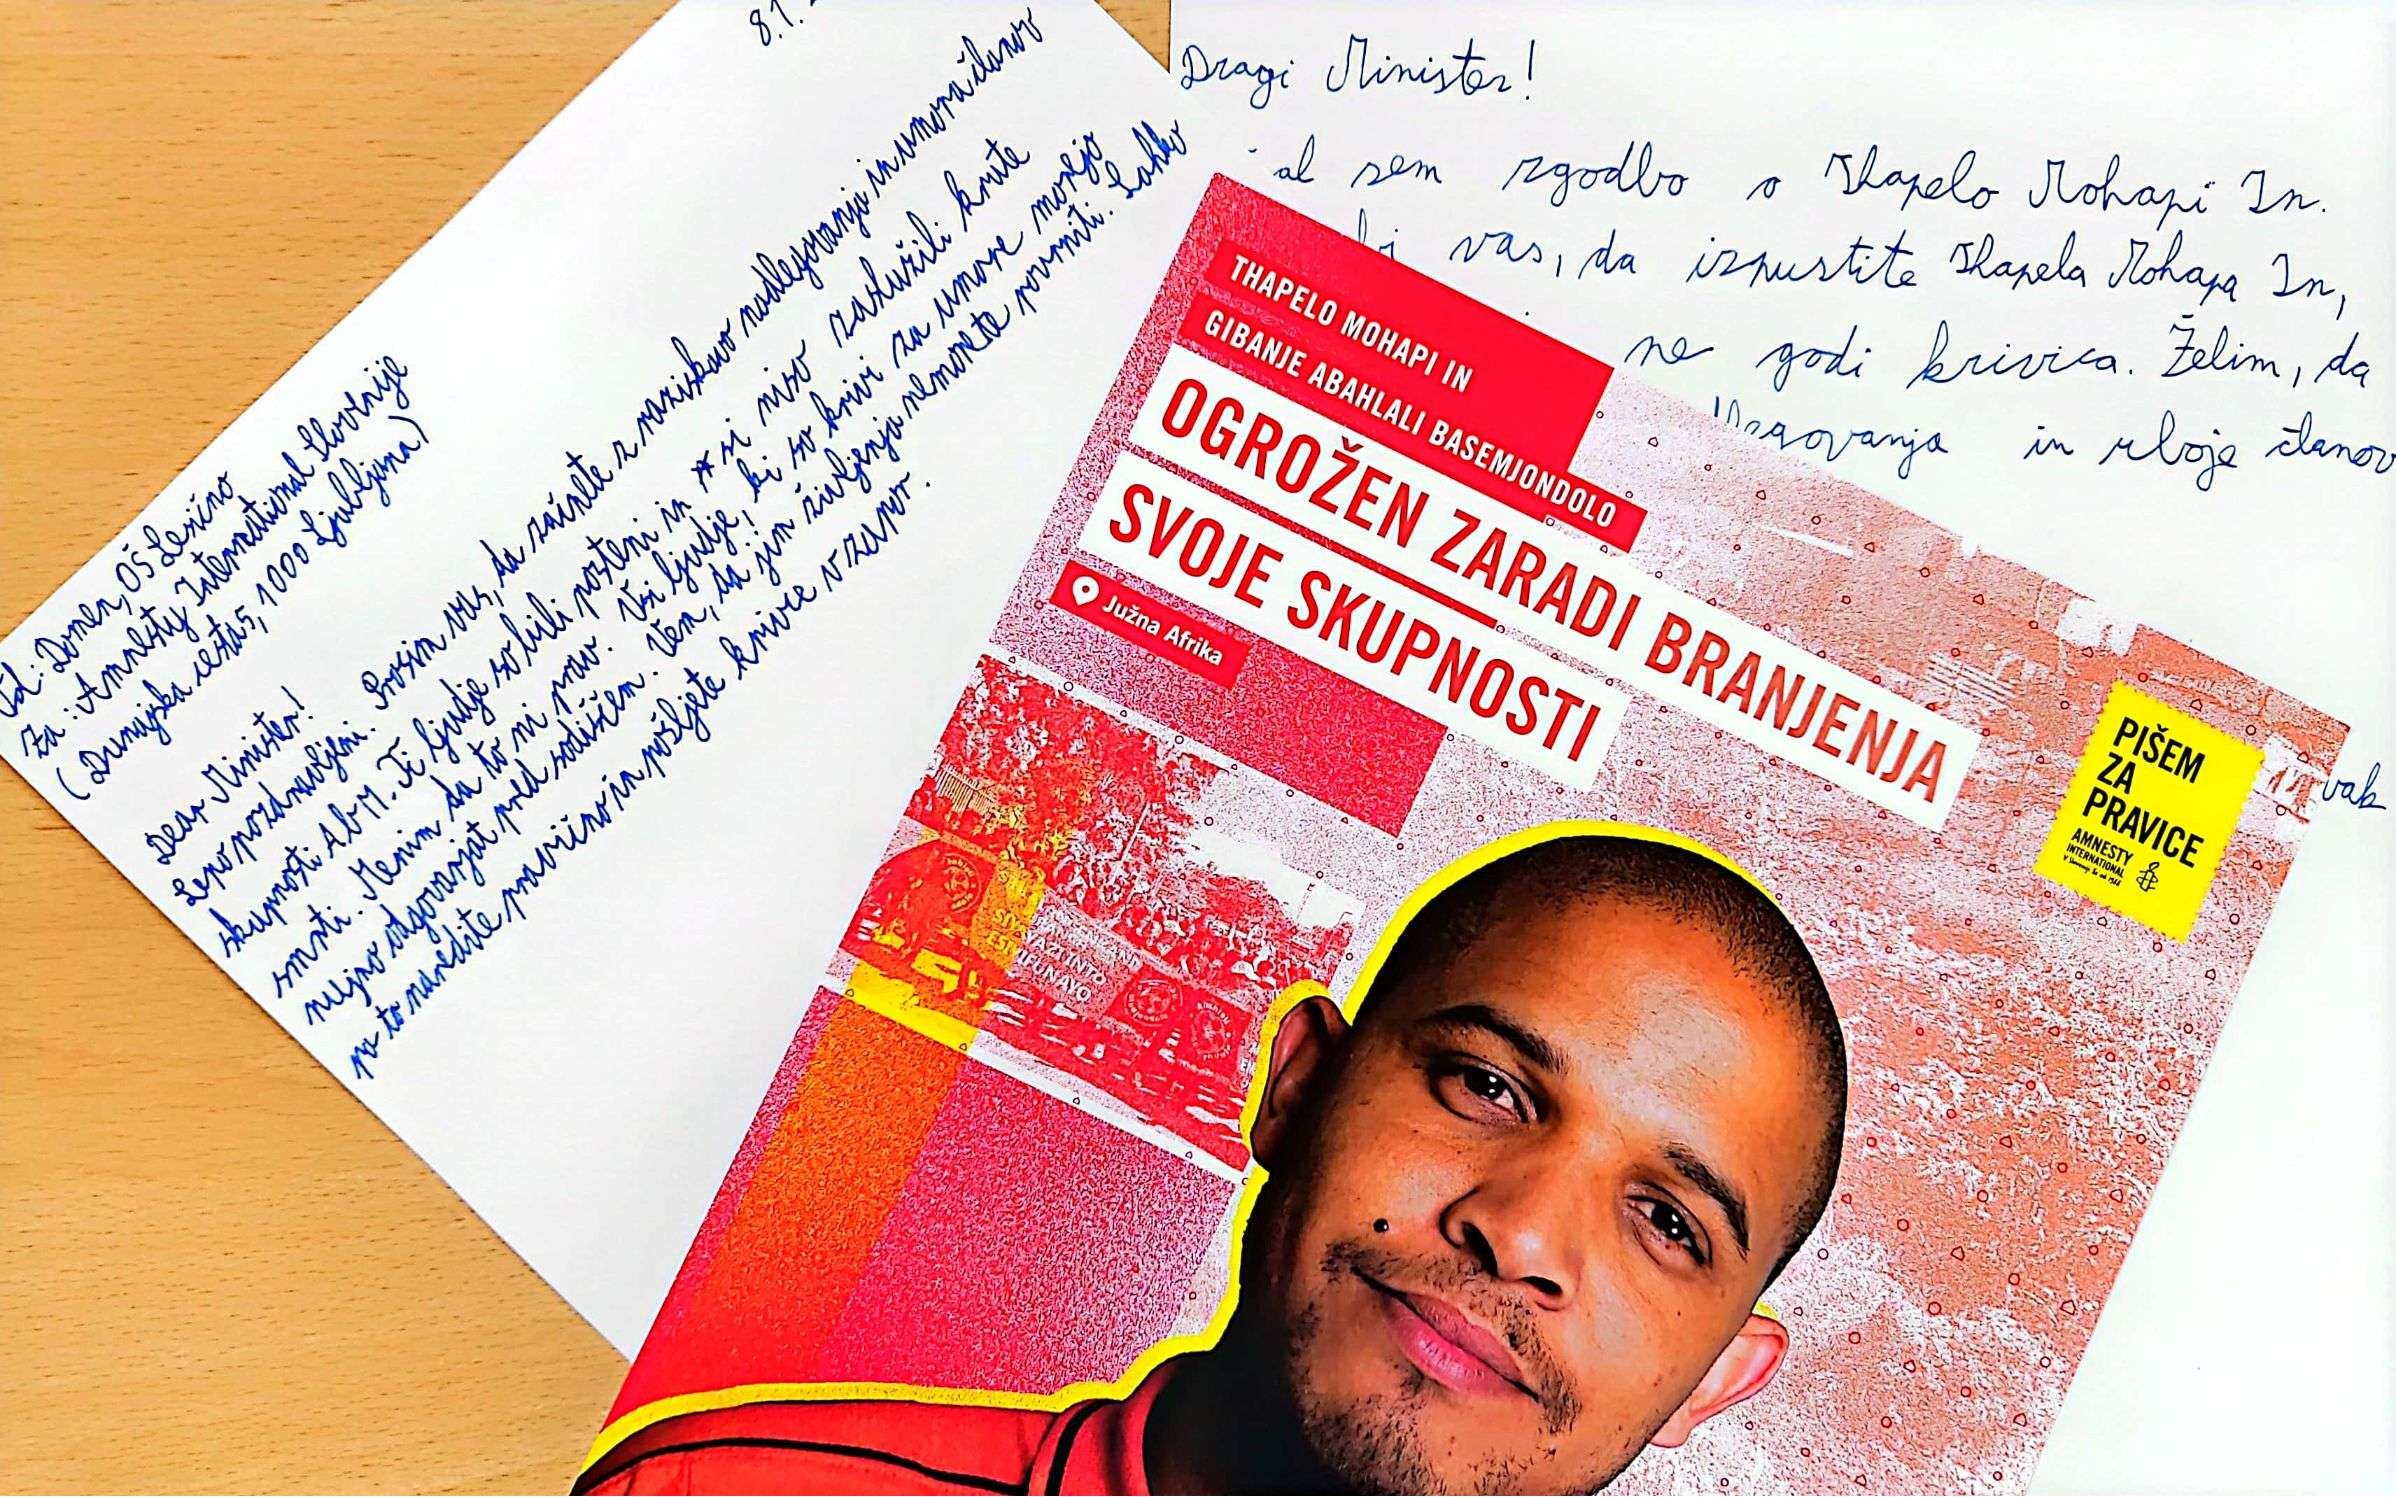 8.1.
Od: Domen, OŠ Lesično
Za: Amnesty International Slovenije
(Dunajska cesta 5, 1000 Ljubljana)
Dear Minister!
Lepo pozdravljeni. Prosim vas, da začnete z raziskavo nadlegovanja in umora članov
skupnosti AbM. Ti ljudje so bili pošteni in si niso zaslužili krute
smrti. Menim da to ni prav. Vsi ljudje, ki so krivi za umore morajo
nujno odgovarjat pred sodiščem. Vem, da jim življenja nemorete povrniti. Lahko
pa to naredite pravično in pošljete krivce v zapor.
Dragi Minister!
al sem zgodbo o Thapelo Mohapi In.
bi vas, da izpustite Thapela Mohapa In,
ne godi krivica. Želim, da
legovanja in uboje članov
vak
THAPELO MOHAPI IN
GIBANJE ABAHLALI BASEMJONDOLO
OGROŽEN ZARADI BRANJENJA
SVOJE SKUPNOSTI
Južna Afrika
PIŠEM
ZA
PRAVICE
AMNESTY
INTERNATIONAL